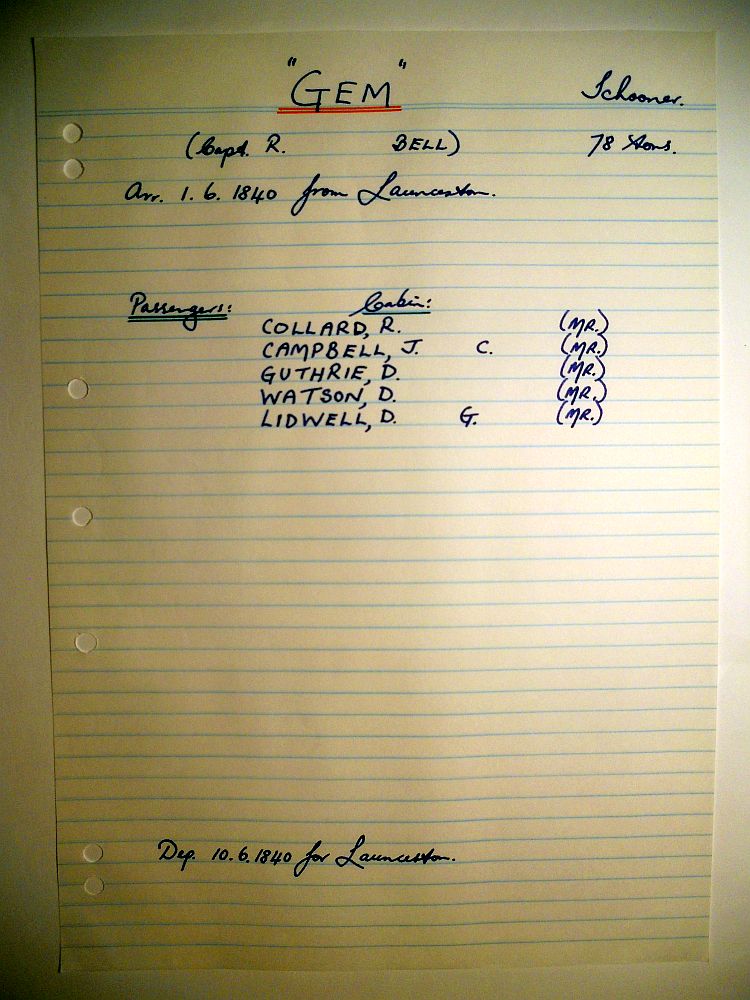 "GEM" Schooner.
(Capt. R. BELL) 78 tons.
Arr. 1.6.1840 from Launceston.
Passengers: Cabin:
COLLARD, R. (MR.)
CAMPBELL, J. C. (MR.)
GUTHRIE, D. (MR.)
WATSON, D. (MR.)
LIDWELL, D. G. (MR.)
Dep. 10.6.1840 for Launceston.